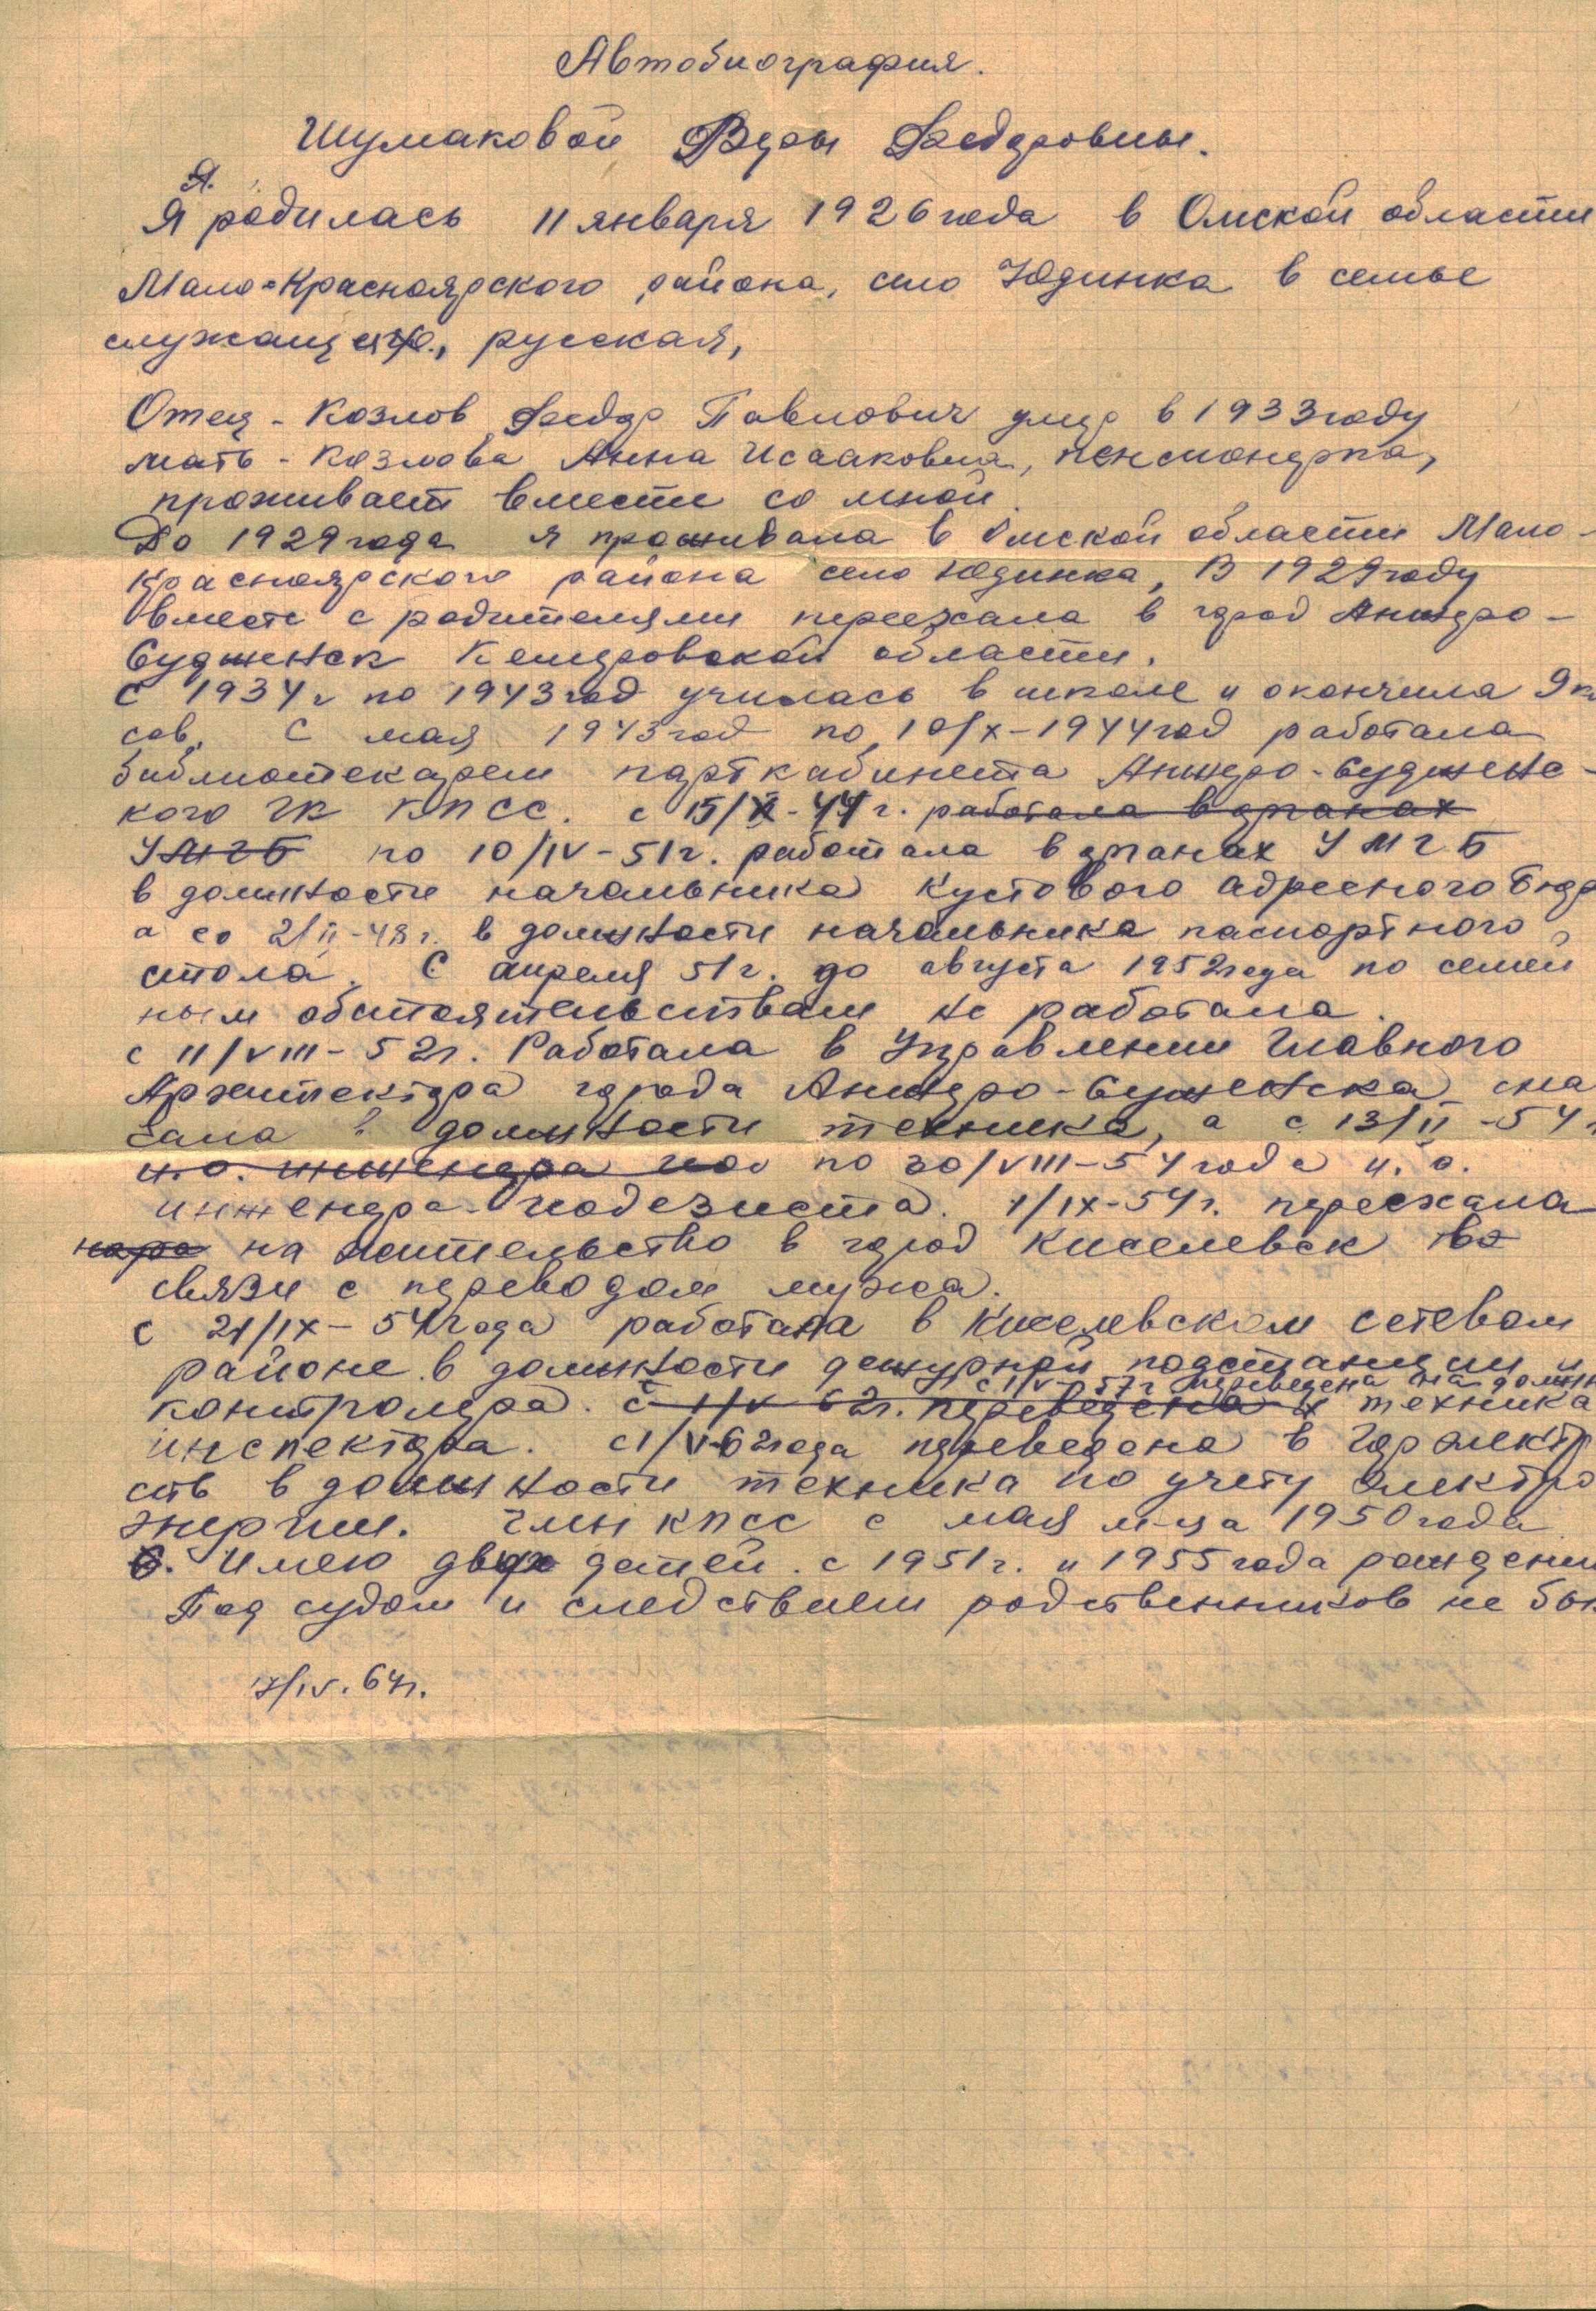 Автобиография.
Шумаковой Веры Федоровны.
Я.
Я родилась 11 января 1926 года в Омской области
Мало-Красноярского района, село Юдинка в семье
служащего, русская,
Отец - Козлов Федор Павлович умер в 1933 году
мать - Козлова Анна Исааковна, пенсионерка,
проживает вместе со мной.
До 1929 года я проживала в Омской области Мало-
Красноярского района село Юдинка, В 1929 году
вместе с родителями переехала в город Анжеро-
Судженск Кемеровской области.
С 1934 г по 1943 год училась в школе и окончила 9 кл
сов. С мая 1943 год по 10/X-1944 год работала
библиотекарем парткабинета Анжеро-Судженс-
кого ГК КПСС. с 15/X-44 г. работала в органах
УМГБ по 10/IV-51г. работала в органах УМГБ
в должности начальника Кустового адресного бюро
а со 2/II-48 г. в должности начальника паспортного
стола. С апреля 51г. до августа 1952 года по семей
ным обстоятельствам не работала.
с 11/VIII-52г. Работала в Управлении Главного
Архитектора города Анжеро-Сужденска сна
чала в должности техника, а с 13/II-54 г
и.о. инженера по 30/VIII-54 года и.о.
инженера-геодезиста. 1/IX-54г. переехала
на жительство в город Киселевск в
связи с переводом мужа.
с 21/IX-54 года работала в Киселевском сетевом
районе в должности дежурной подстанции и
с 1/V-57г переведена на должн
контролера. с 1/V 62г. переведена техника
инспектора. с 1/V-62 года переведена в Горэлектр
сеть в должности техника по учету электро
энергии. Член КПСС с мая м-ца 1950 года
Имею двух детей. с 1951г. и 1955 года рождени
Под судом и следствием родственников не был
17/IV. 64г.